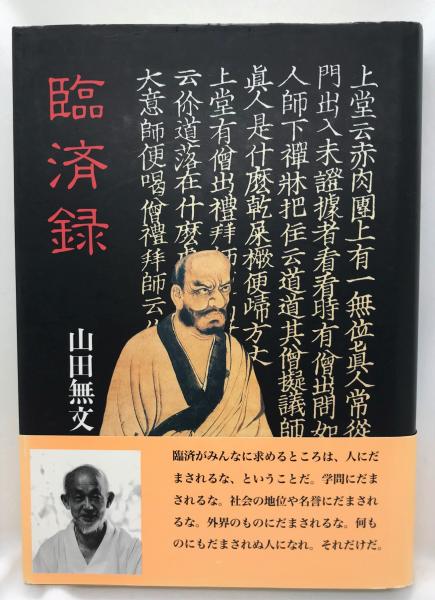 臨済録
山田無文
上堂云赤肉團上有一無位眞人常從
門出入未證據者看看時有僧出問如
人師下禪牀把住云道道其僧擬議師
眞人是什麼乾屎橛便歸方丈
上堂有僧出禮拜師
云你道落在什麼
大意師便喝僧禮拜師云
臨済がみんなに求めるところは、人にだ
まされるな、ということだ。学問にだま
されるな。社会の地位や名誉にだまされ
るな。外界のものにだまされるな。何も
のにもだまされぬ人になれ。それだけだ。